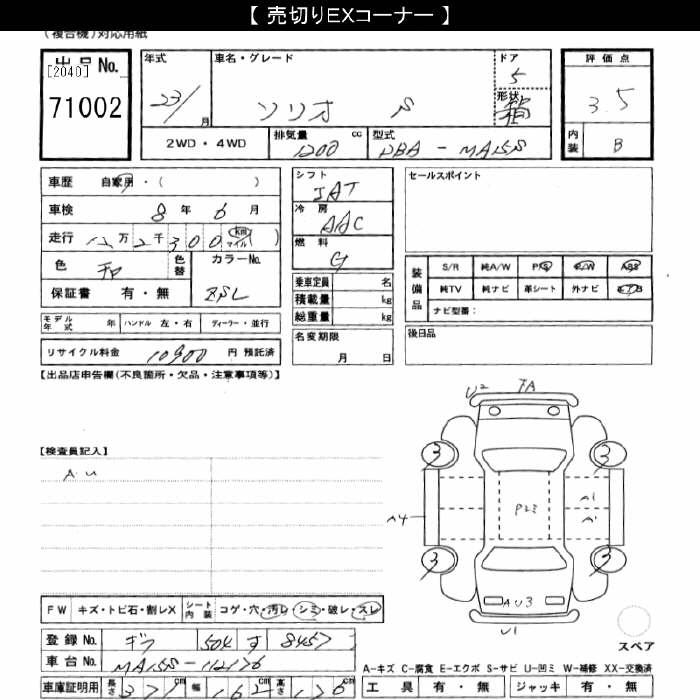 【 売切りEXコーナー 】
(複合機)対応用紙
出品No.
[2040]
71002
年式
23/
月
車名・グレード
ソリオ S
ドア
5
形状
箱
2WD・4WD
排気量
1200 cc
型式
DBA - MA15S
評価点
3.5
内装
B
車歴 自家用・( )
車検 8年 6月
走行 12万 2千 300 (km マイル)
色
色替
カラーNo.
ZSL
保証書 有・無
モデル年式 年 ハンドル 左・右 ディーラー・並行
リサイクル料金 10900 円 預託済
シフト
IAT
冷房
AAC
燃料
G
乗車定員 名
積載量 kg
総重量 kg
名変期限
月 日
セールスポイント
装備品
S/R 純A/W PS P/W ABS
純TV 純ナビ 革シート 外ナビ ETC
ナビ型番:
後日品
【出品店申告欄(不良箇所・欠品・注意事項等)】
【検査員記入】
A U
U2 TA
3 3
A4
P23
A1
3 3
AU3
U1
スペア
FW キズ・トビ石・割レX シート内装 コゲ・穴・汚レ・シミ・破レ・スレ
登録No. ギフ 504 す 8457
車台No. MA15S-112176
車庫証明用 長さ 371cm 幅 162cm 高さ 176
A-キズ C-腐食 E-エクボ S-サビ U-凹ミ W-補修 XX-交換済
工具 有・無 ジャッキ 有・無